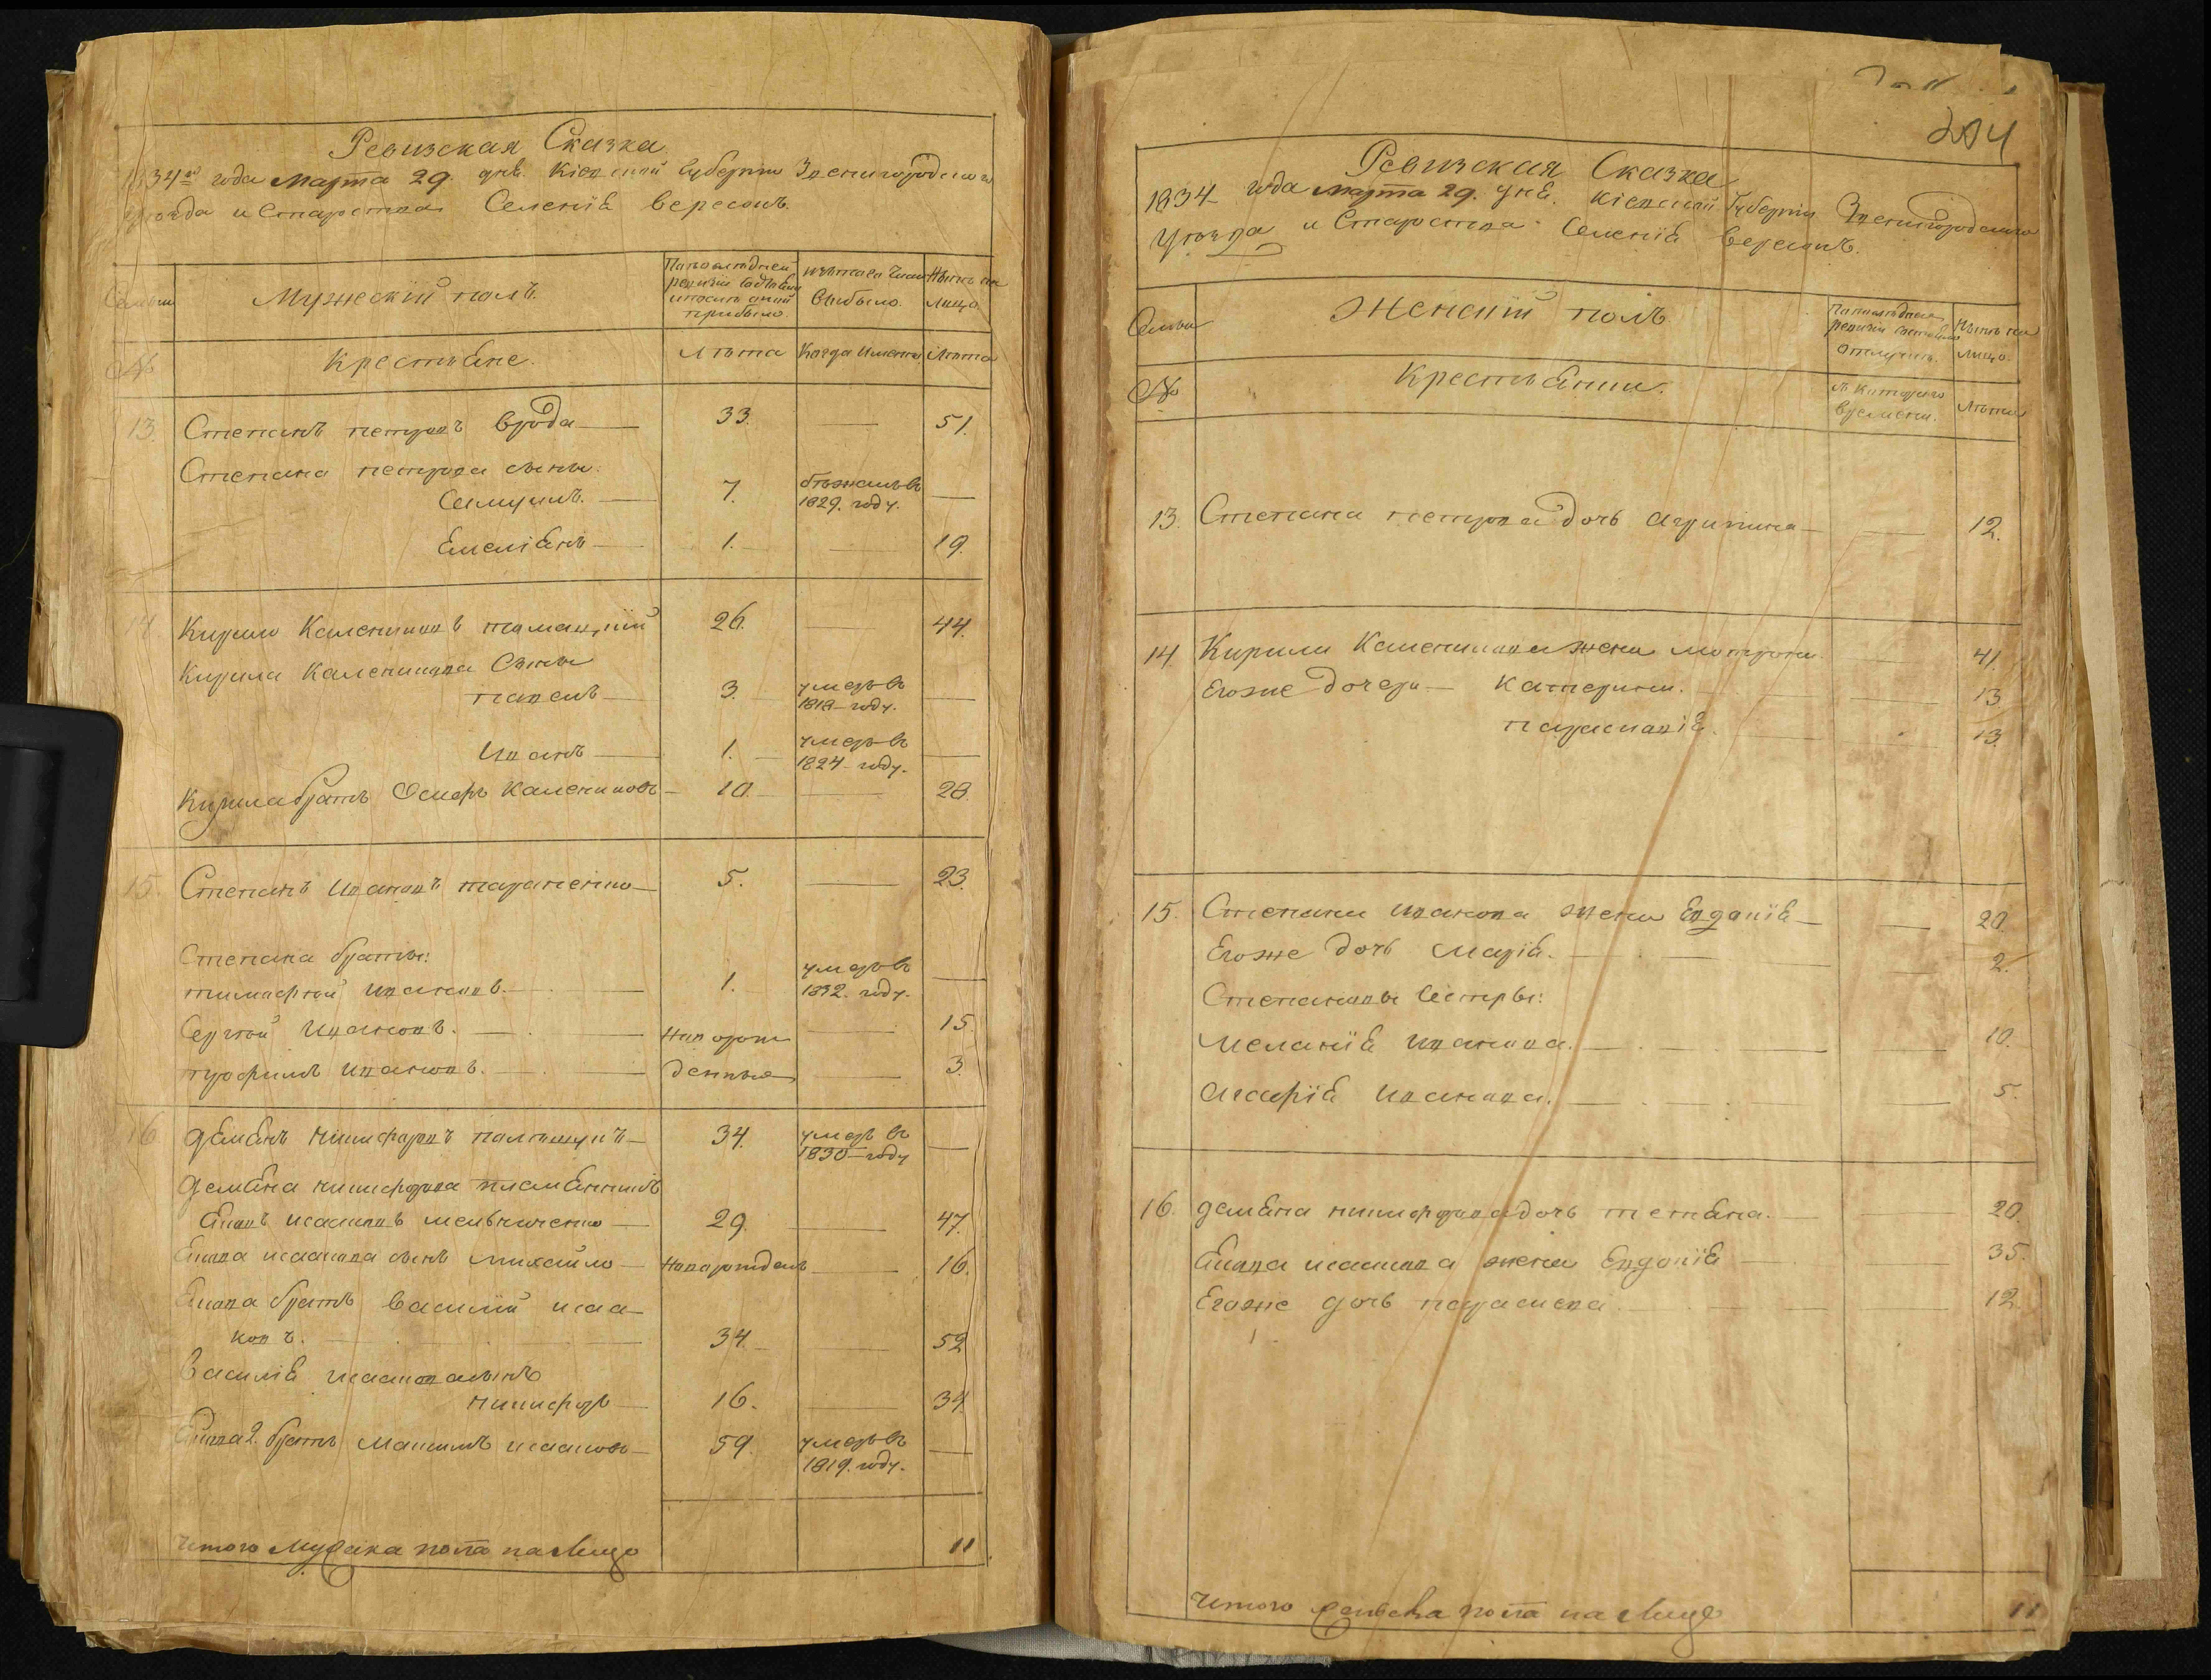 Ревизская Сказка
1834го года марта 29. дня. Кіевской Губерніи Звенигородскаго
Уѣзда и Староства Селенія Вересокъ.
Семьи
Мужескій полъ.
По последней ревизіи состояло и после оной прибыло.
Изъ того числа Выбыло.
Нынѣ на лицо
№
Крестьяне.
Лѣта
Когда Именно
Лѣта
13. Степанъ петровъ врода — 33. — 51.
Степана петрова сыны:
Самуилъ. — 7. бѣжалъ въ 1829. году. —
Емеліянъ — 1. — 19.
14 Кирило Калениковъ 26. — 44.
Кирила Каленикова Сыны
павелъ — 3. умеръ въ 1818 году. —
Иванъ — 1. умеръ въ 1824 году. —
Кирила братъ Осипъ Калениковъ — 10. — 28.
15. Степанъ Ивановъ тараненко — 5. — 23.
Степана браты:
тимофтей Ивановъ. — 1. умеръ въ 1832. году. —
Сергѣй Ивановъ. — Новорож — 15.
трофимъ Ивановъ. — денные — 3.
16 демянъ никифоровъ — 34. умеръ въ 1830 году —
демяна никифорова племянникъ
Яковъ исааковъ мельниченко — 29. — 47.
Якова исаакова сынъ михайло — Новорожденъ — 16.
Якова братъ василій исаа-
ковъ. — 34. — 52
Василія исаакова сынъ
никифоръ — 16. — 34.
Якова 2. братъ Максимъ исааковъ — 59. умеръ въ 1819. году. —
Итого Мужеска пола на лицо 11
204
Ревизская Сказка
1834 года марта 29. дня. Кіевской Губерніи Звенигородскаго
Уѣзда и Староства Селенія Вересокъ.
Семьи
Женскій полъ
По последней ревизіи
отлучкѣ.
Нынѣ на лицо.
№
Крестьянки.
съ которого времени.
Лѣта
13. Степана петрова дочь агрипина — 12.
14 Кирила Каленикова жена мотрона — 41.
Егоже дочери — Катерина. — 13
параскавія. — 13.
15. Степана Иванова жена Евдокія — 20.
Егоже дочь марія. — 2.
Степановы сестры:
Меланія Иванова. — 10.
агафія Иванова. — 5.
16. демяна никифорова дочь тетяна. — 20.
Якова исаакова жена Евдокія — 35.
Егоже дочь параскева — 12
Итого Женска пола на лицо 11